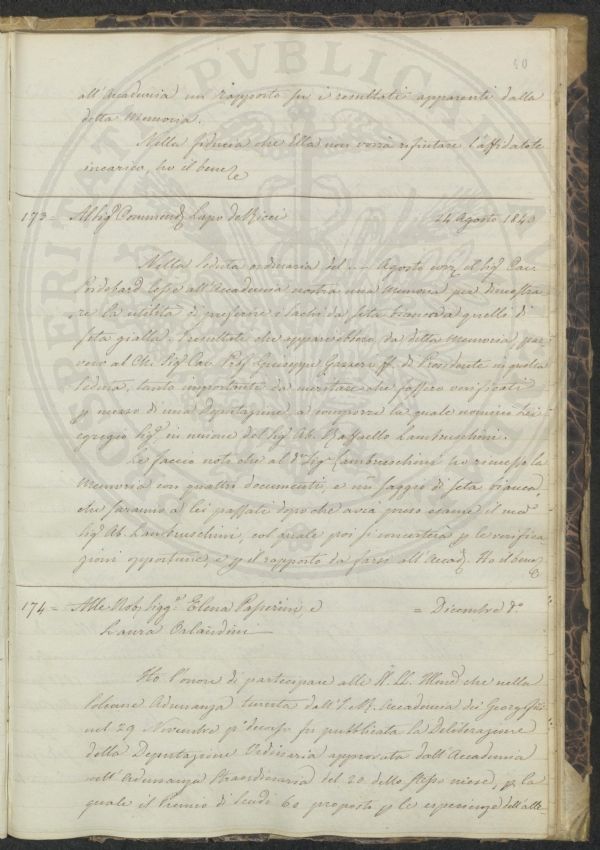 40
all'Accademia un rapporto su i resultati apparenti dalla
detta Memoria.
Nella fiducia che Ella non vorrà rifiutare l'affidatole
incarico, ho il bene
173 = All Sig.r Commend. Lapo de Ricci 24 Agosto 1840
Nella Seduta ordinaria del Agosto il Sig. Cav.
lesse all'Accademia nostra una Memoria per dimostra
re la utilità di preferire i bachi da seta bianca a quelli di
seta gialla. I resultati che apparirebbero da detta Memoria, par
vero al Ch. Sig. Cav. Prof. Giuseppe Gazzeri ff. di Presidente in quella
Seduta, tanto importante da meritare che fossero verificati
p mezzo di una Deputazione a comporre la quale nominò Lei
egregio Sig. in unione del Sig. Ab. Raffaello Lambruschini.
Le faccio noto che al d.o Sig. Lambruschini ho rimesso la
Memoria con quattro documenti, e un saggio di seta bianca,
che saranno a Lei passati dopo che avrà preso esame il med.o
Sig. Ab. Lambruschini, col quale poi si concerterà p le verifica
zioni opportune, e p il rapporto da farsi all'Accad. Ho il bene
174 = Alle Nob. Sigg.e Elena Passerini e = Dicembre d.o
Laura Orlandini
Ho l'onore di partecipare alle LL. che nella
Solenne Adunanza tenuta dall'I. R. Accademia dei Georgofili
nel 29 Novembre p. decorso fu pubblicata la Deliberazione
della Deputazione Ordinaria approvata dall'Accademia
nell'Adunanza del 20 dello stesso mese, p la
quale il Premio di Scudi 60 proposto p le esperienze dell'alle-